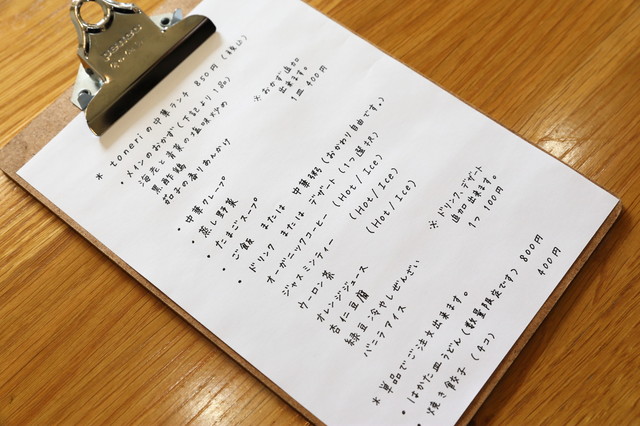 * toneriの中華ランチ 850円(税込)
・メインのおかず(下記より1品)
海老と青菜の塩味炒め
黒酢鶏
茄子の香りあんかけ
※おかず追加
出来ます。
1皿 400円
・中華クレープ
・蒸し野菜
・たまごスープ
・ご飯 または 中華粥(おかわり自由です。)
・ドリンク または デザート(1つ選択)
オーガニックコーヒー(Hot/Ice)
ジャスミンティー(Hot/Ice)
ウーロン茶(Hot/Ice)
オレンジジュース
杏仁豆腐
緑豆冷やしぜんざい
バニラアイス
※ドリンク、デザート
追加出来ます。
1つ 100円
*単品でご注文出来ます。
・はかた皿うどん(数量限定です) 800円
・焼き餃子(4コ) 400円